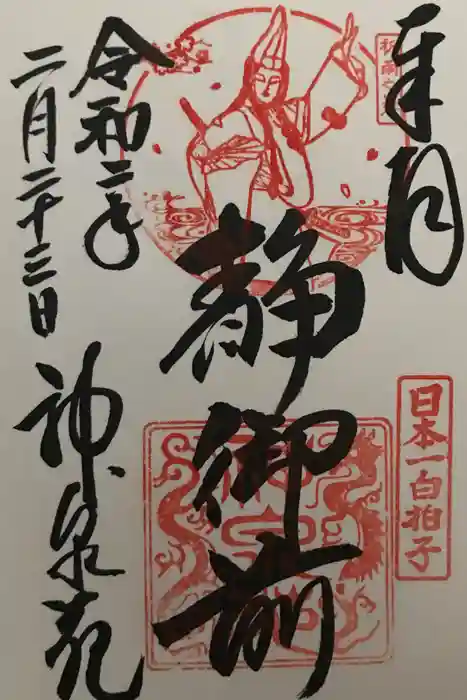 奉拝
日本一白拍子
静御前
令和二年
二月二十三日
神泉苑